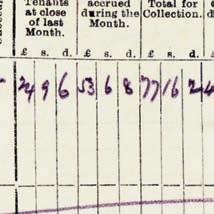 Tenants
at close
of last
Month.
accrued
during the
Month.
Total for
Collection.
£ s. d. £ s. d. £ s. d. £
24 9 6 53 6 8 77 16 2